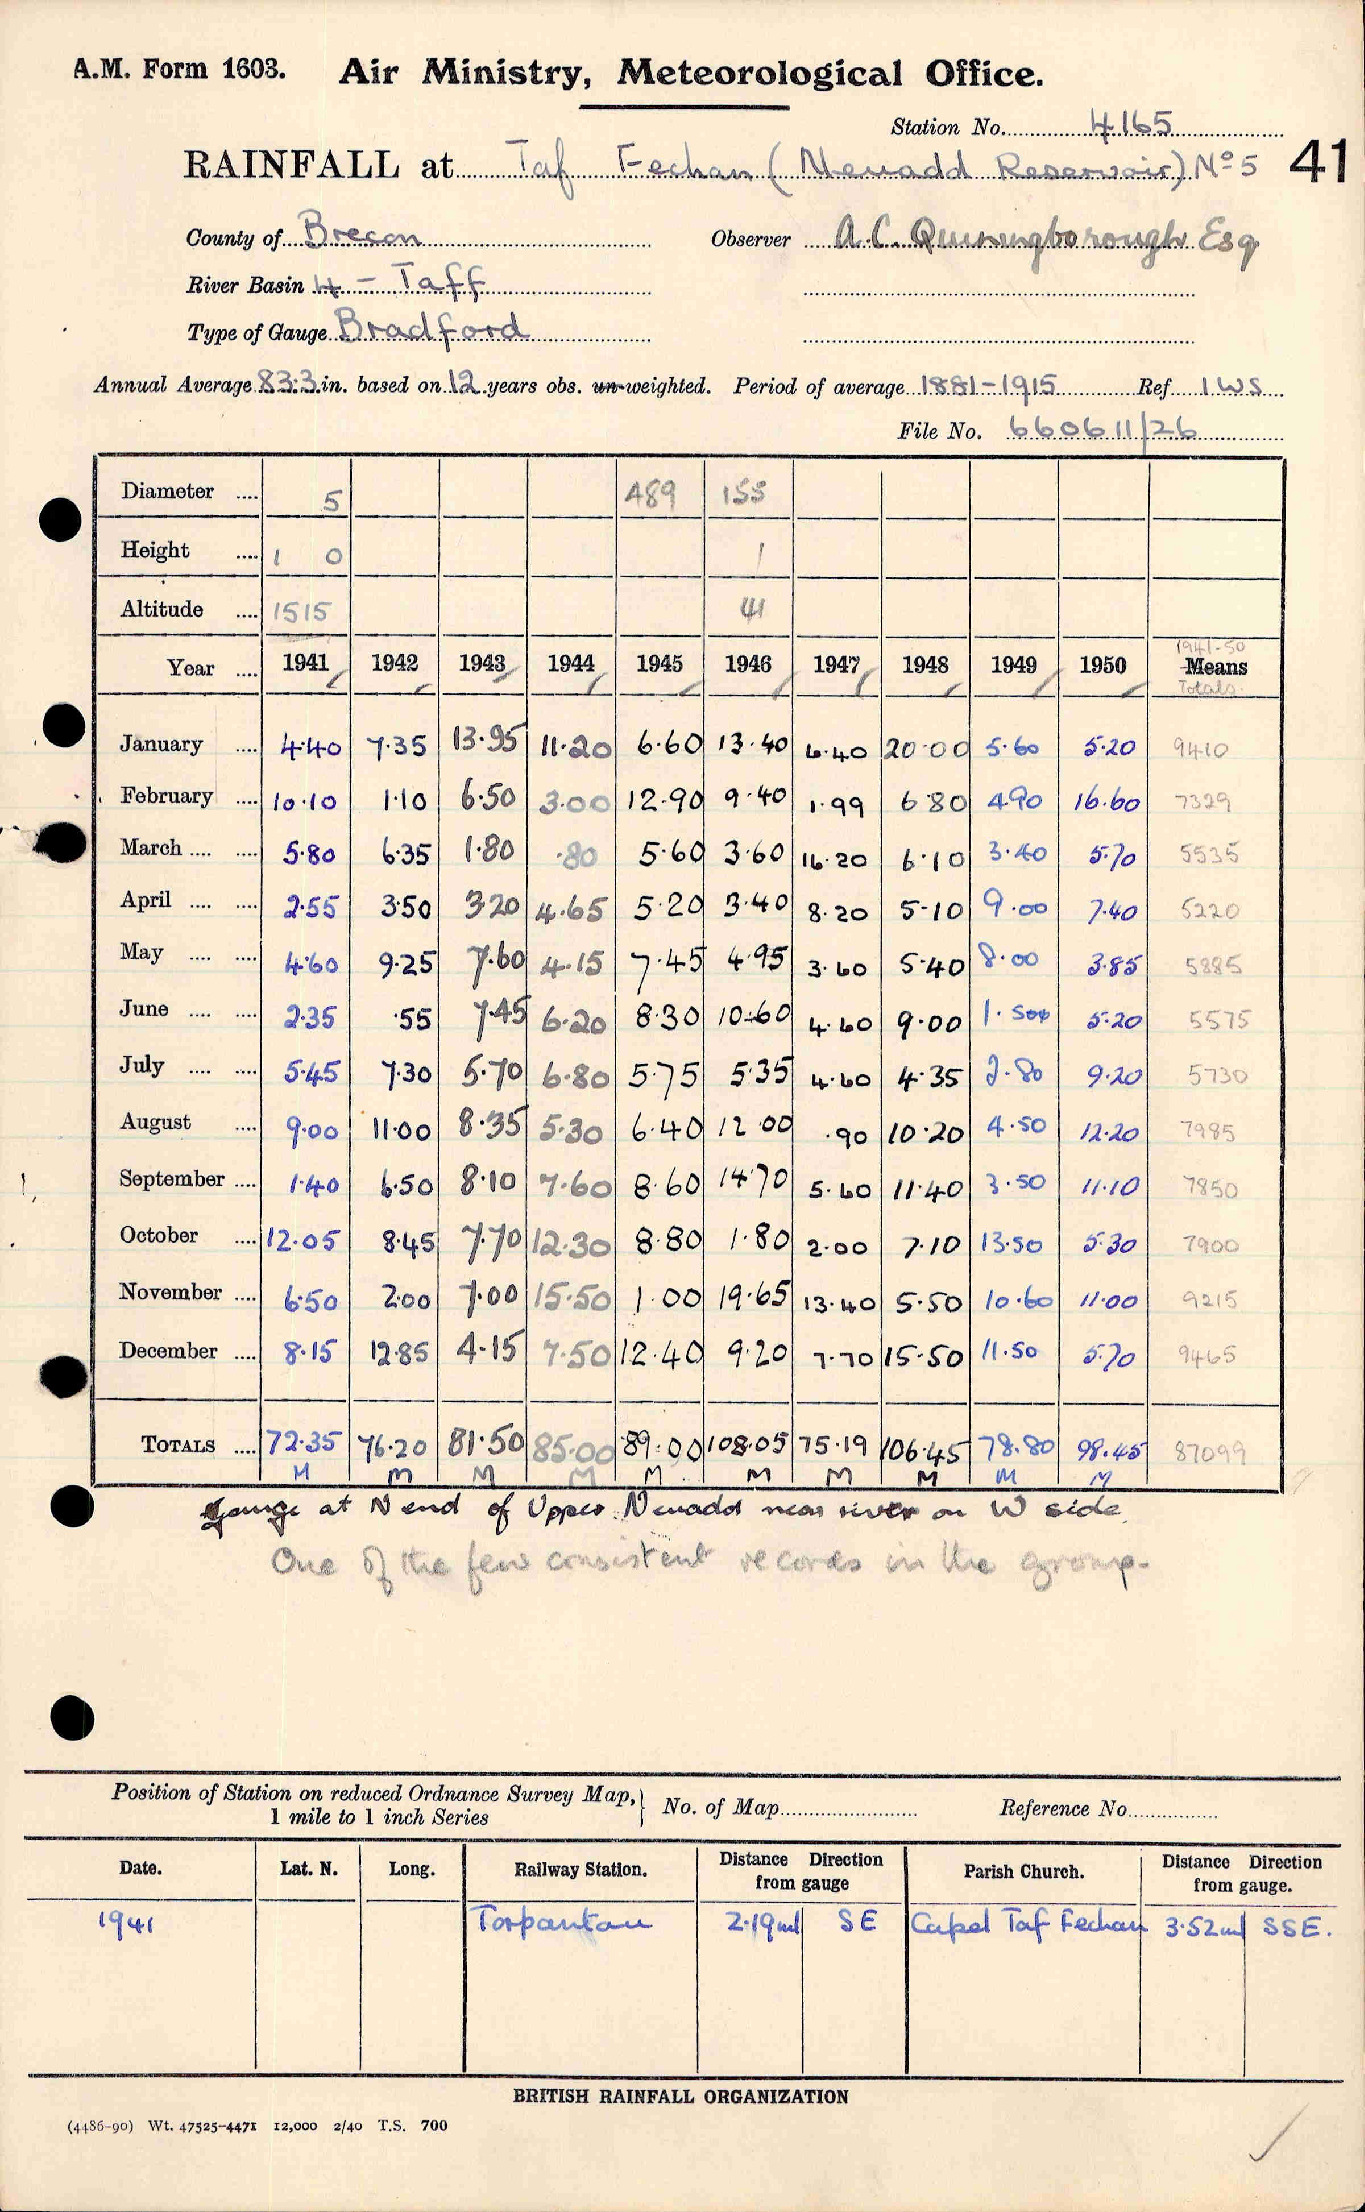 A.M. Form 1603. Air Ministry, Meteorological Office.
Station No. 4165
RAINFALL at Taf Fechan (Neuadd Reservoir) No 5 41
County of Brecon Observer A.C. Quinningborough Esq
River Basin 4 - Taff
Type of Gauge Bradford
Annual Average 83.3 in. based on 12 years obs. un-weighted. Period of average 1881-1915 Ref. IWS
File No. 660611/26
Diameter .... 5 489 155
Height .... 1 0 1
Altitude .... 1515
Year .... 1941 1942 1943 1944 1945 1946 1947 1948 1949 1950 1941-50 Means Totals
January .... 4.40 7.35 13.95 11.20 6.60 13.40 6.40 20.00 5.60 5.20 9410
February .... 10.10 1.10 6.50 3.00 12.90 9.40 1.99 6.80 4.90 16.60 7329
March .... .... 5.80 6.35 1.80 .80 5.60 3.60 16.20 6.10 3.40 5.70 5535
April .... .... 2.55 3.50 3.20 4.65 5.20 3.40 8.20 5.10 9.00 7.40 5220
May .... .... 4.60 9.25 7.60 4.15 7.45 4.95 3.60 5.40 8.00 3.85 5885
June .... .... 2.35 .55 7.45 6.20 8.30 10.60 4.60 9.00 1.50 5.20 5575
July .... .... 5.45 7.30 5.70 6.80 5.75 5.35 4.60 4.35 2.80 9.20 5730
August .... 9.00 11.00 8.35 5.30 6.40 12.00 .90 10.20 4.50 12.20 7985
September .... 1.40 6.50 8.10 7.60 8.60 14.70 5.60 11.40 3.50 11.10 7850
October .... 12.05 8.45 7.70 12.30 8.80 1.80 2.00 7.10 13.50 5.30 7900
November .... 6.50 2.00 7.00 15.50 1.00 19.65 13.40 5.50 10.60 11.00 9215
December .... 8.15 12.85 4.15 7.50 12.40 9.20 7.70 15.50 11.50 5.70 9465
TOTALS .... 72.35 76.20 81.50 85.00 89.00 108.05 75.19 106.45 78.80 98.45 87099
M M M M M M M M M M
Gauge at N end of Upper Neuadd near river on W side
One of the few consistent records in the group.
Position of Station on reduced Ordnance Survey Map, 1 mile to 1 inch Series } No. of Map Reference No.
Date. Lat. N. Long. Railway Station. Distance Direction from gauge Parish Church. Distance Direction from gauge.
1941 Torpantau 2.19 ml SE Capel Taf Fechan 3.52 ml SSE.
BRITISH RAINFALL ORGANIZATION
(4486-90) Wt. 47525-4471 12,000 2/40 T.S. 700